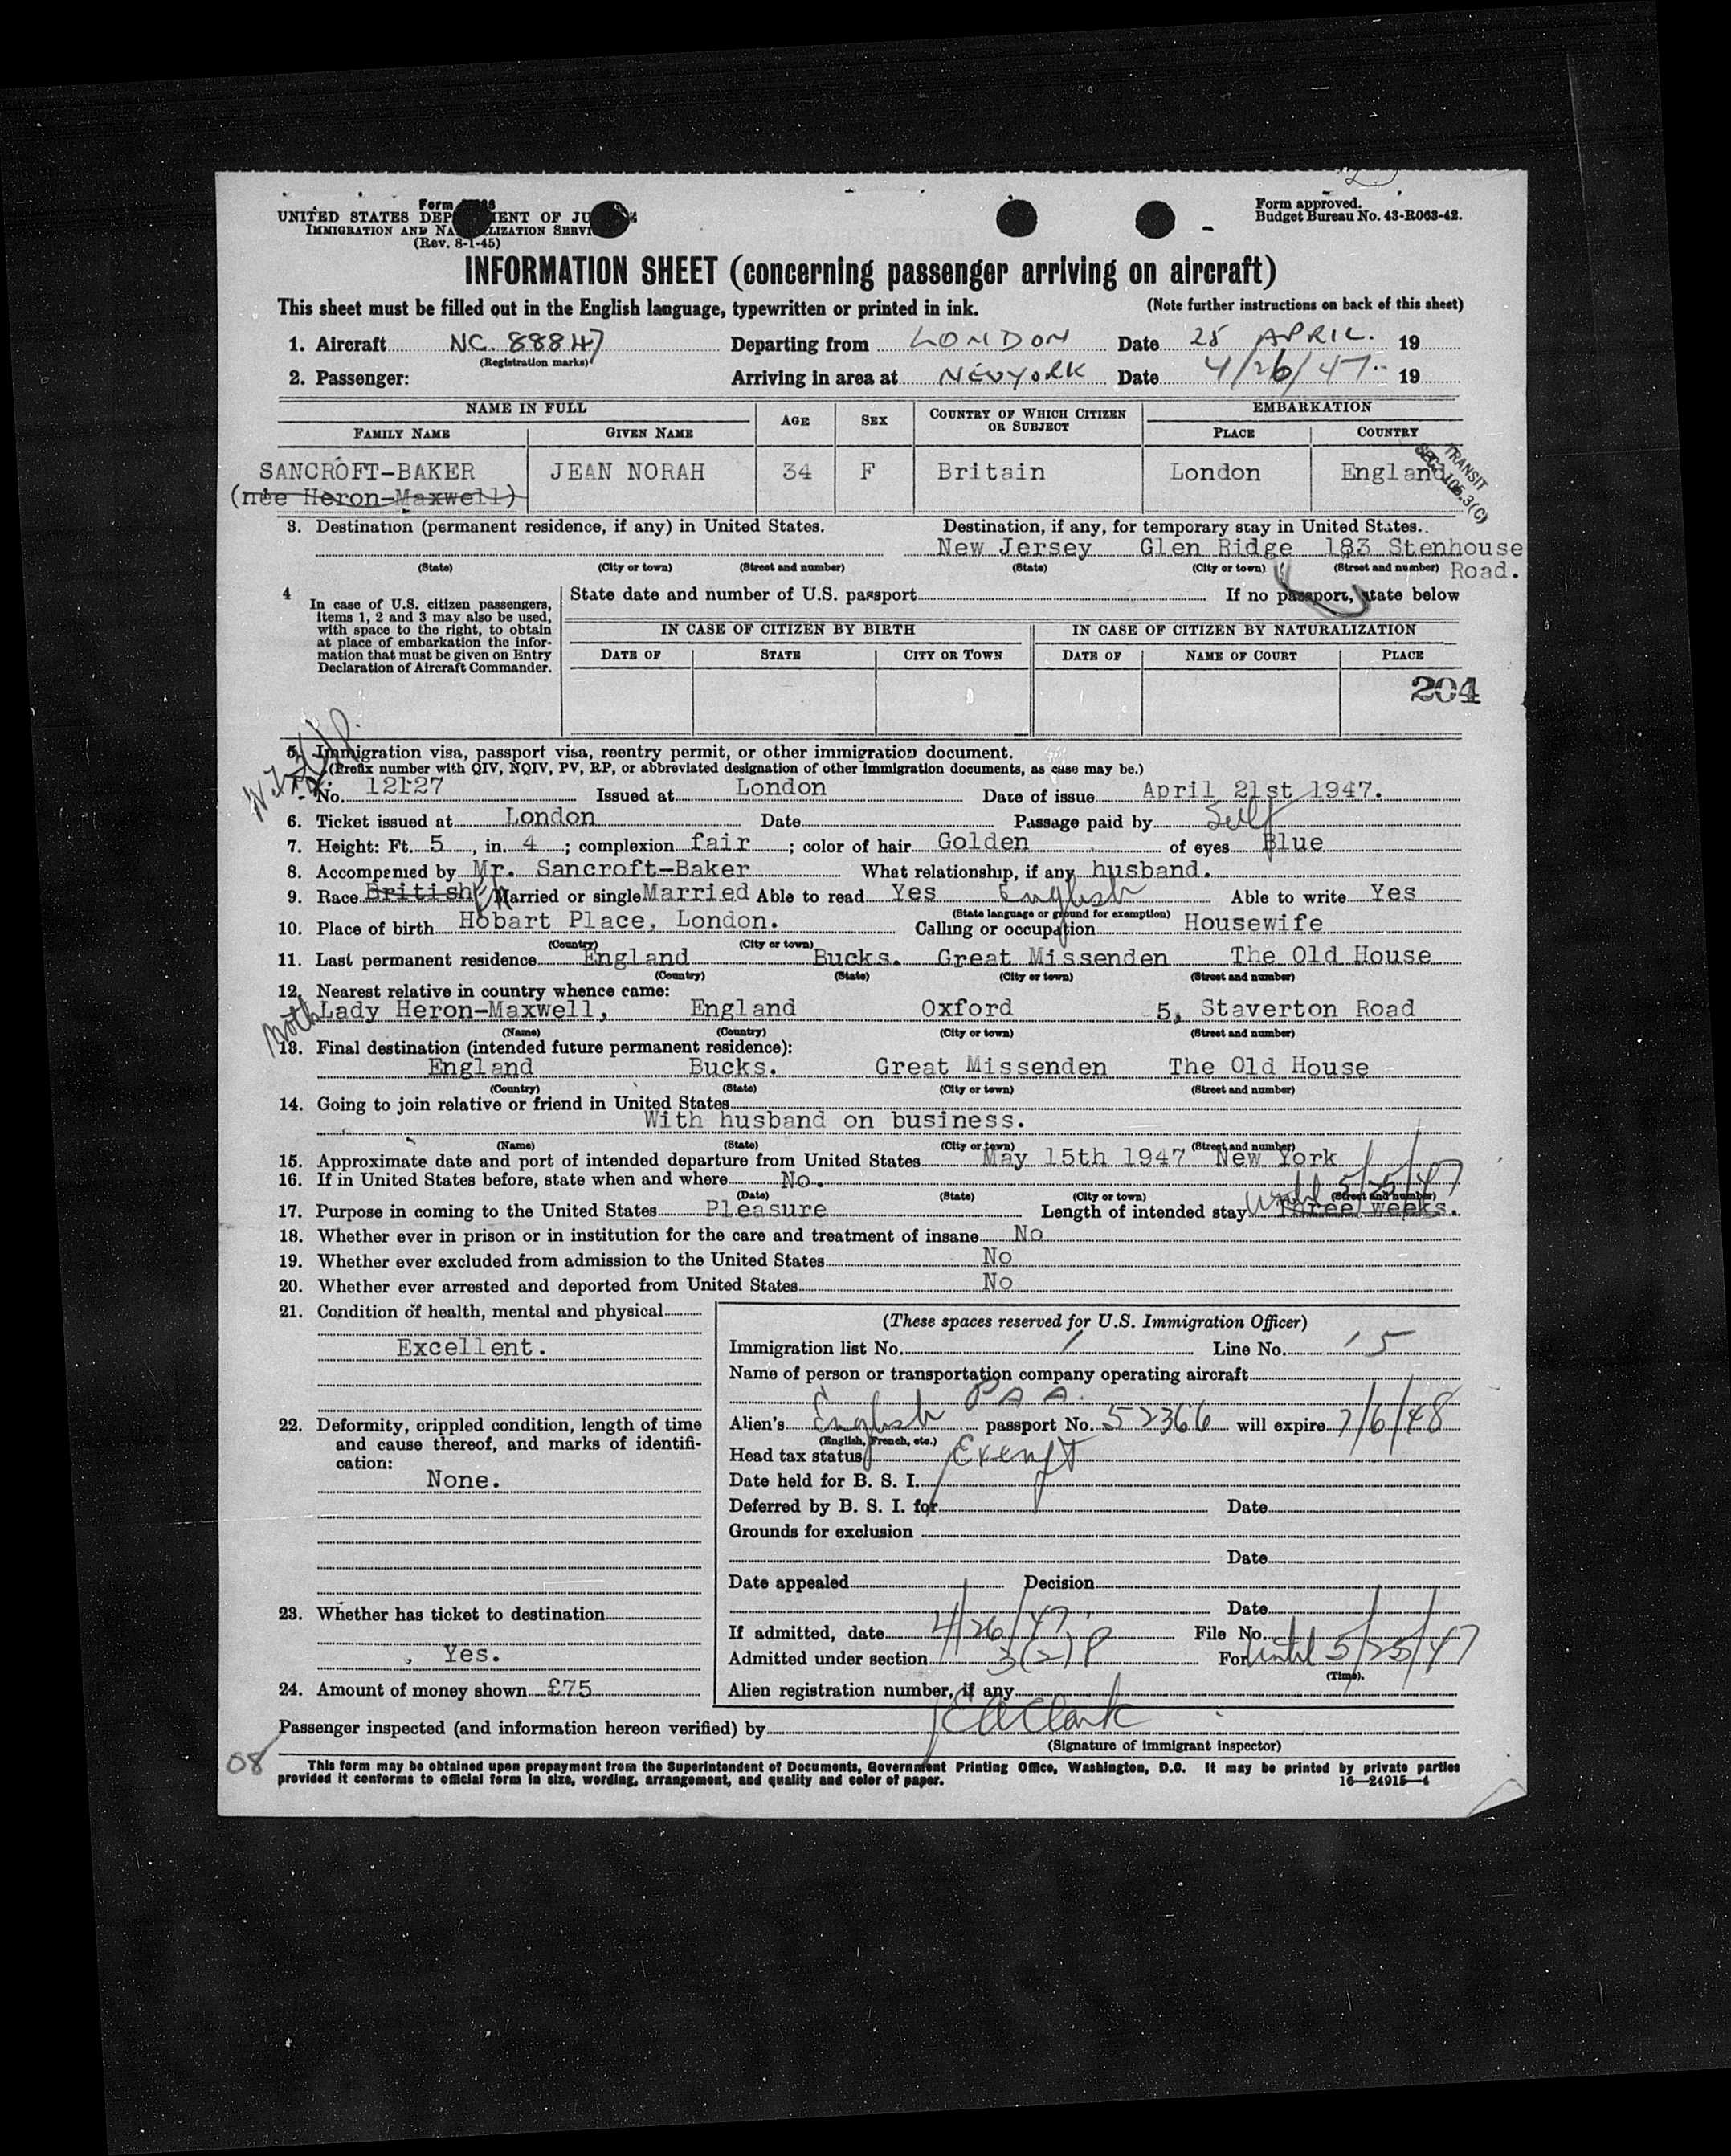 Form
UNITED STATES DEP ENT OF JU
IMMIGRATION AND NA LIZATION SERVI
(Rev. 8-1-45)
Form approved.
Budget Bureau No. 43-R063-42.
INFORMATION SHEET (concerning passenger arriving on aircraft)
This sheet must be filled out in the English language, typewritten or printed in ink. (Note further instructions on back of this sheet)
1. Aircraft NC. 88847 Departing from LONDON Date 25 APRIL. 19
(Registration marks)
2. Passenger: Arriving in area at NEWYORK Date 4/26/47. 19
NAME IN FULL AGE SEX COUNTRY OF WHICH CITIZEN OR SUBJECT EMBARKATION
FAMILY NAME GIVEN NAME PLACE COUNTRY
SANCROFT-BAKER JEAN NORAH 34 F Britain London England
(née Heron-Maxwell)
TRANSIT
SEC. 105.3(C)
3. Destination (permanent residence, if any) in United States. Destination, if any, for temporary stay in United States.
New Jersey Glen Ridge 183 Stenhouse
(State) (City or town) (Street and number) (State) (City or town) (Street and number) Road.
4 In case of U.S. citizen passengers, items 1, 2 and 3 may also be used, with space to the right, to obtain at place of embarkation the information that must be given on Entry Declaration of Aircraft Commander.
State date and number of U.S. passport If no passport, state below
IN CASE OF CITIZEN BY BIRTH IN CASE OF CITIZEN BY NATURALIZATION
DATE OF STATE CITY OR TOWN DATE OF NAME OF COURT PLACE
204
5. Immigration visa, passport visa, reentry permit, or other immigration document.
(Prefix number with QIV, NQIV, PV, RP, or abbreviated designation of other immigration documents, as case may be.)
No. 12127 Issued at London Date of issue April 21st 1947.
6. Ticket issued at London Date Passage paid by Self
7. Height: Ft. 5, in. 4; complexion fair; color of hair Golden of eyes Blue
8. Accompanied by Mr. Sancroft-Baker What relationship, if any husband.
9. Race British En Married or single Married Able to read Yes English Able to write Yes
(State language or ground for exemption)
10. Place of birth Hobart Place, London. Calling or occupation Housewife
(Country) (City or town)
11. Last permanent residence England Bucks. Great Missenden The Old House
(Country) (State) (City or town) (Street and number)
12. Nearest relative in country whence came:
Moth Lady Heron-Maxwell, England Oxford 5, Staverton Road
(Name) (Country) (City or town) (Street and number)
13. Final destination (intended future permanent residence):
England Bucks. Great Missenden The Old House
(Country) (State) (City or town) (Street and number)
14. Going to join relative or friend in United States
With husband on business.
(Name) (State) (City or town) (Street and number)
15. Approximate date and port of intended departure from United States May 15th 1947 New York
16. If in United States before, state when and where No.
(Date) (State) (City or town) (Street and number)
17. Purpose in coming to the United States Pleasure Length of intended stay Three weeks. Until 5/25/47
18. Whether ever in prison or in institution for the care and treatment of insane No
19. Whether ever excluded from admission to the United States No
20. Whether ever arrested and deported from United States No
21. Condition of health, mental and physical
Excellent.
22. Deformity, crippled condition, length of time and cause thereof, and marks of identification:
None.
23. Whether has ticket to destination
Yes.
24. Amount of money shown £75
(These spaces reserved for U.S. Immigration Officer)
Immigration list No. 1 Line No. 15
Name of person or transportation company operating aircraft
P A A.
Alien's English passport No. 52366 will expire 7/6/48
(English, French, etc.)
Head tax status Exempt
Date held for B. S. I.
Deferred by B. S. I. for Date
Grounds for exclusion
Date
Date appealed Decision
Date
If admitted, date 4/26/47 File No.
Admitted under section 3(2) P For until 5/25/47
(Time).
Alien registration number, if any
Passenger inspected (and information hereon verified) by E A Clark
(Signature of immigrant inspector)
08
This form may be obtained upon prepayment from the Superintendent of Documents, Government Printing Office, Washington, D.C. It may be printed by private parties
provided it conforms to official form in size, wording, arrangement, and quality and color of paper. 16—24915-4